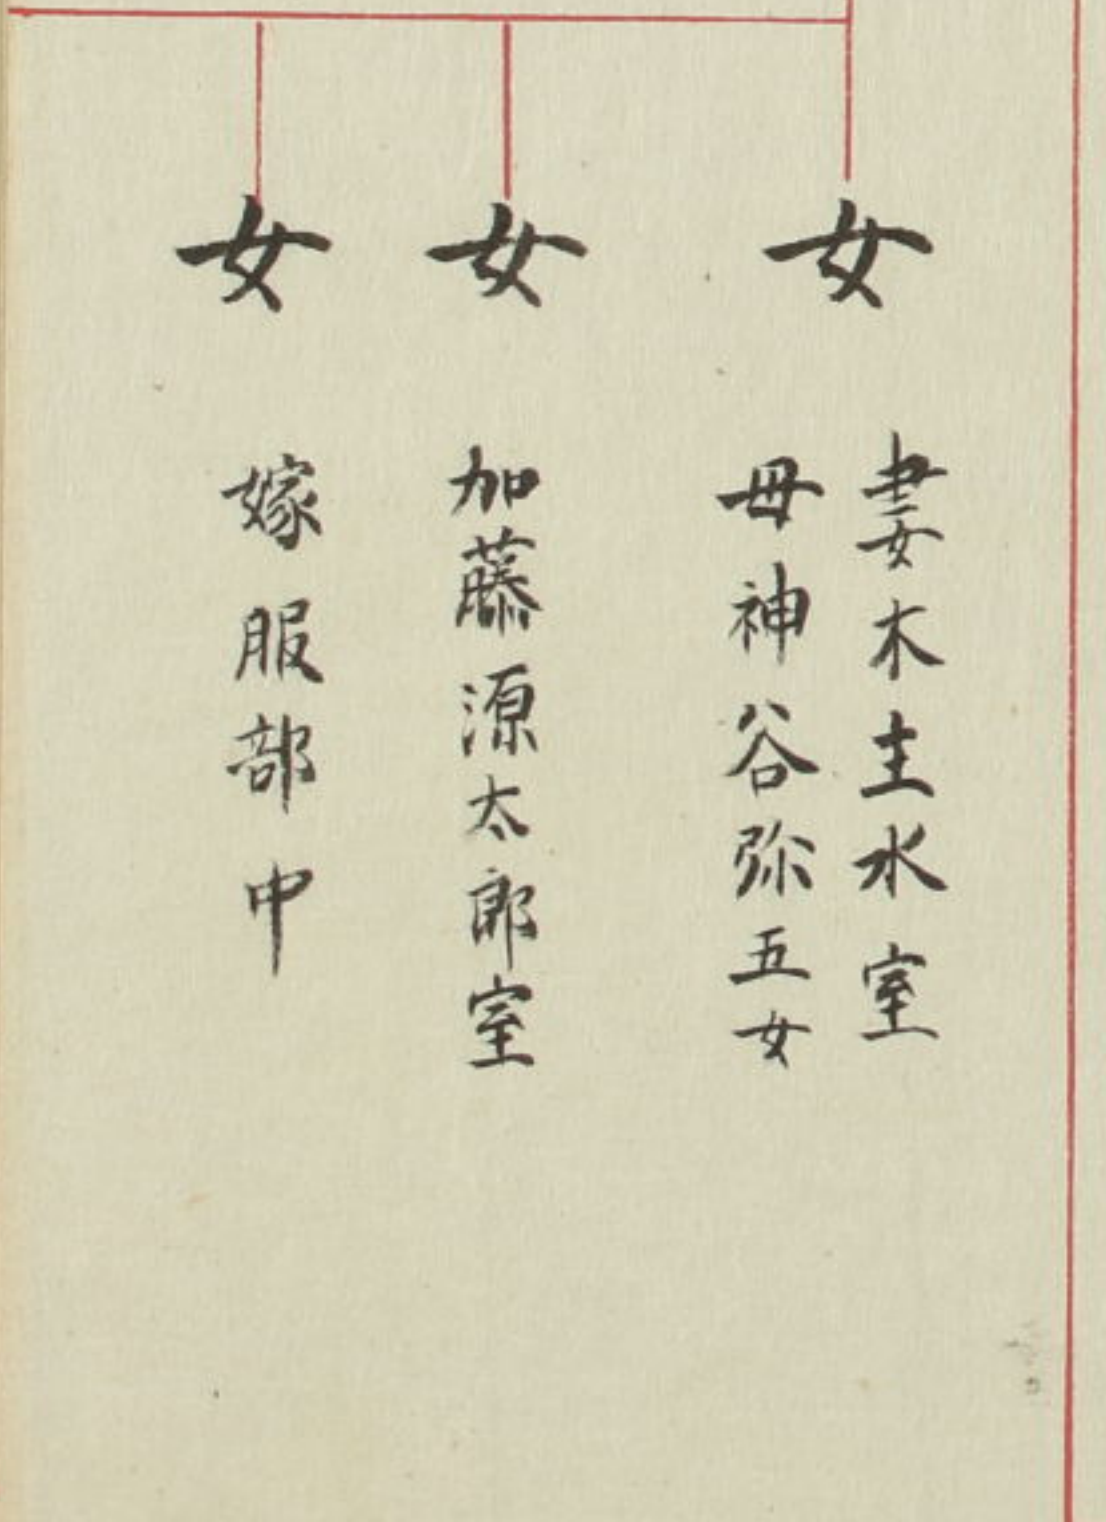 女
妻木主水室
母神谷弥五女
女
加藤源太郎室
女
嫁服部中